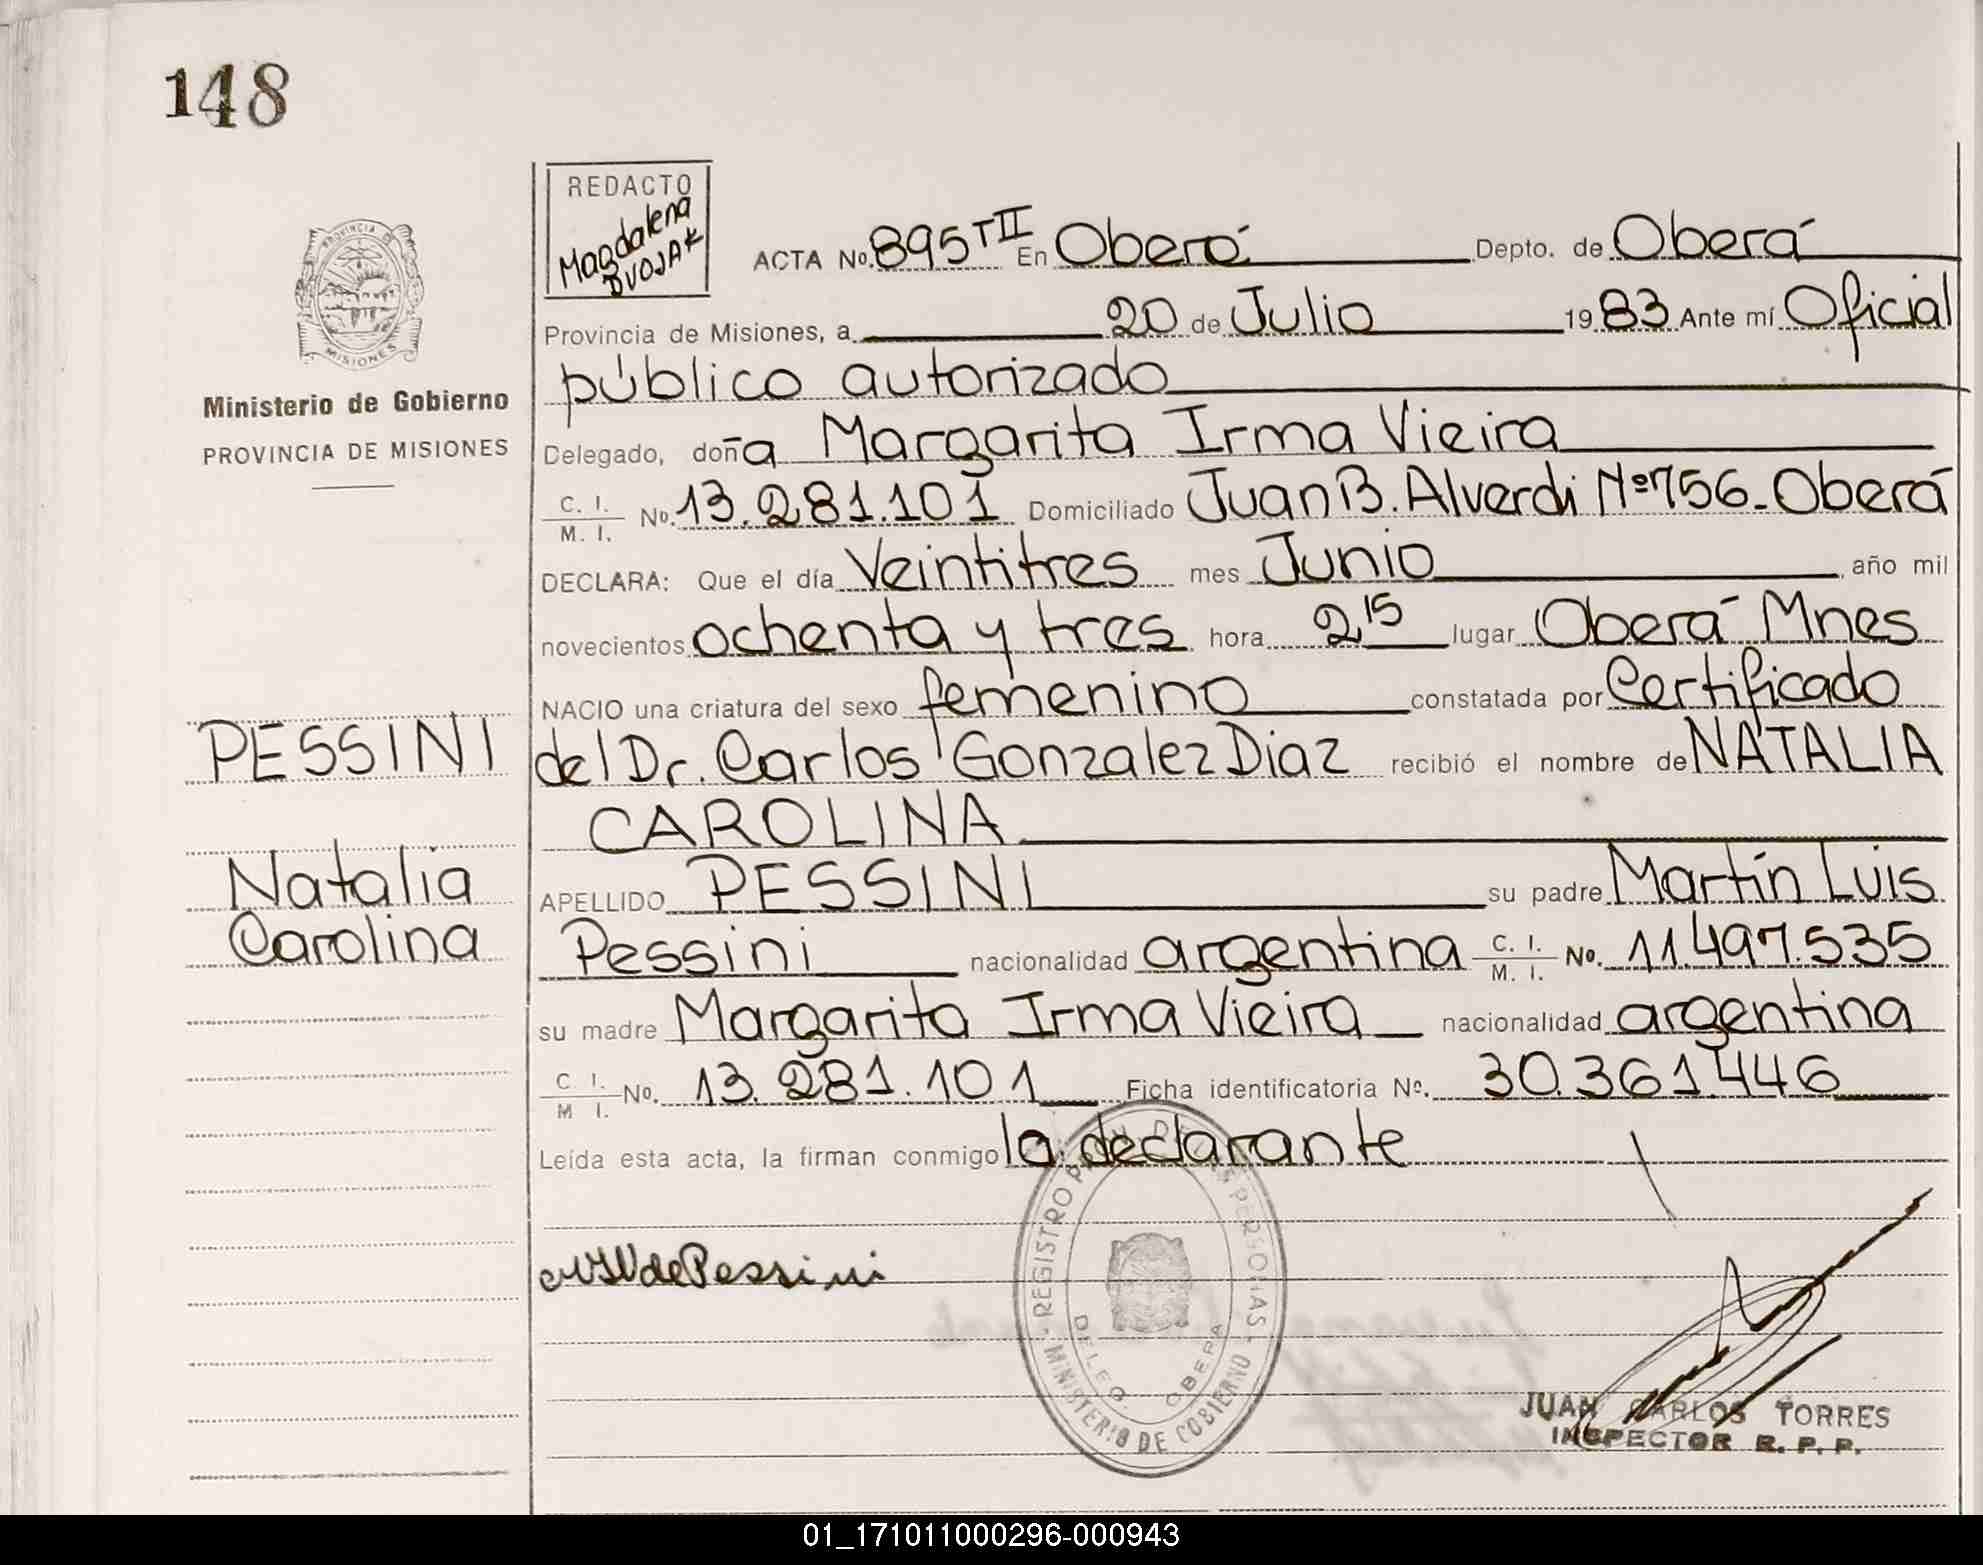 148
REDACTO
Magdalena
DVOJAK
PROVINCIA DE
MISIONES
Ministerio de Gobierno
PROVINCIA DE MISIONES
ACTA No. 895 T II En Oberá Depto. de Oberá
Provincia de Misiones, a 20 de Julio 19 83 Ante mí Oficial
público autorizado
Delegado, doña Margarita Irma Vieira
C. I. / M. I. No. 13.281.101 Domiciliado Juan B. Alverdi Nº 756 - Oberá
DECLARA: Que el día Veintitres mes Junio, año mil
novecientos ochenta y tres hora 2 15 lugar Oberá Mnes
NACIO una criatura del sexo femenino constatada por Certificado
PESSINI
del Dr. Carlos Gonzalez Diaz recibió el nombre de NATALIA
CAROLINA
Natalia
Carolina
APELLIDO PESSINI su padre Martín Luis
Pessini nacionalidad argentina C. I. / M. I. No. 11.497.535
su madre Margarita Irma Vieira nacionalidad argentina
C. I. / M. I. No. 13.281.101 Ficha identificatoria Nº. 30.361.446
Leída esta acta, la firman conmigo la declarante
MIV de Pessini
REGISTRO PERSONAS
DELEG. OBERA
MINISTERIO DE GOBIERNO
JUAN CARLOS TORRES
INSPECTOR R. P. P.
01_171011000296-000943